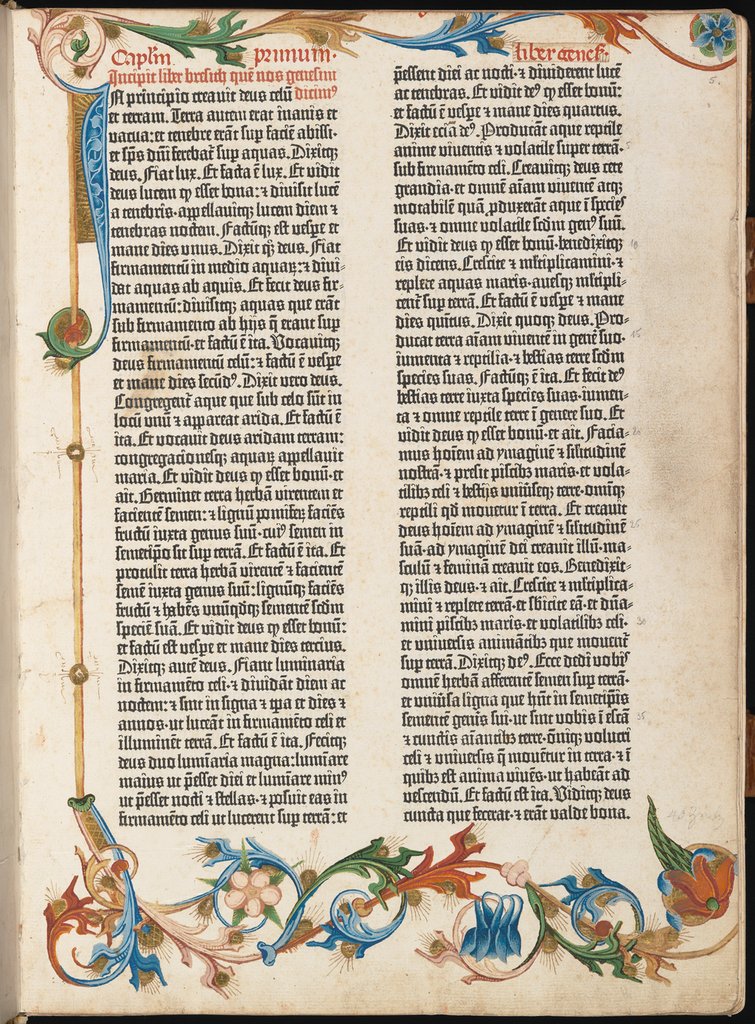 Caplm̄ primum·
Incipit liber bresich quē nos genesim
dicimꝰ
IN principio creauit deus celū
et terram. Terra autem erat inanis et
vacua: et tenebre erāt sup faciē abissi·
et sp̄s dn̄i ferebat᷑ sup aquas. Dixitqꝫ
deus. Fiat lux. Et facta ē lux. Et vidit
deus lucem ꝙ esset bona: ⁊ diuisit lucē
a tenebris· appellauitqꝫ lucem diem ⁊
tenebras noctem. Factūqꝫ est vespe et
mane dies vnus. Dixit qꝫ deus. Fiat
firmamentū in medio aquaꝝ: ⁊ diui-
dat aquas ab aquis. Et fecit deus fir-
mamentū: diuisitqꝫ aquas que erāt
sub firmamento ab hijs q̄ erant sup
firmamentū: et factū ē ita. Vocauitqꝫ
deus firmamentū celū: ⁊ factū ē vespe
et mane dies secūdꝰ. Dixit vero deus.
Congregent᷑ aque que sub celo sūt in
locū vnū ⁊ appareat arida. Et factū ē
ita. Et vocauit deus aridam terram:
congregacionesqꝫ aquaꝝ appellauit
maria. Et vidit deus ꝙ esset bonū· et
ait. Germinet terra herbā virentem et
facientē semen: ⁊ lignū pomifeꝝ faciēs
fructū iuxta genus suū· cuiꝰ semen in
semetip̄o sit sup terrā. Et factū ē ita. Et
protulit terra herbā virentē ⁊ facientē
semē iuxta genus suū: lignūqꝫ faciēs
fructū ⁊ habēs vnūqdqꝫ sementē scdm̄
speciē suā. Et vidit deus ꝙ esset bonū:
et factū est vespe et mane dies tercius.
Dixitqꝫ autē deus. Fiant luminaria
in firmamēto celi· ⁊ diuidāt diem ac
noctem: ⁊ sint in signa ⁊ tp̄a et dies ⁊
annos· ut luceāt in firmamēto celi et
illuminēt terrā. Et factū ē ita. Fecitqꝫ
deus duo lumīaria magna: lumīare
maius ut p̄esset diei et lumīare minꝰ
ut p̄esset nocti ⁊ stellas· ⁊ posuit eas in
firmamēto celi ut lucerent sup terrā: et
liber geneſ.
p̄essent diei ac nocti· ⁊ diuiderent lucē
ac tenebras. Et vidit deꝰ ꝙ esset bonū:
et factū ē vespe ⁊ mane dies quartus.
Dixit eciā deꝰ. Producāt aque reptile
anime viuentis ⁊ volatile super terrā·
sub firmamēto celi. Creauitqꝫ deus cete
grandia· et omnē aīam viuentē atqꝫ
motabilē quā ꝓduxerāt aque ī sp̄cieſ
suas· ⁊ omne volatile scdm̄ genꝰ suū.
Et vidit deus ꝙ esset bonū· benedixitqꝫ
eis dicens. Crescite ⁊ mltiplicamini· ⁊
replete aquas maris· auesqꝫ mltipli-
cent᷑ sup terrā. Et factū ē vespe ⁊ mane
dies quītus. Dixit quoqꝫ deus. Pro-
ducat terra aīam viuentē in genē suo·
iumenta ⁊ reptilia· ⁊ bestias terre scdm̄
species suas. Factūqꝫ ē ita. Et fecit deꝰ
bestias terre iuxta species suas· iumen-
ta ⁊ omne reptile terre ī genere suo. Et
vidit deus ꝙ esset bonū· et ait. Facia-
mus hoīem ad ymaginē ⁊ silitudinē
nostrā· ⁊ presit piscibꝫ maris· et vola-
tilibꝫ celi ⁊ bestijs vniūseqꝫ terre· omīqꝫ
reptili qd̄ mouetur ī terra. Et creauit
deus hoīem ad ymaginē ⁊ silitudinē
suā· ad ymaginē dei creauit illū· ma-
sculū ⁊ feminā creauit eos. Benedixit-
qꝫ illis deus· ⁊ ait. Crescite ⁊ mltiplica-
mini ⁊ replete terrā· et sbicite eā· et dn̄a-
mini piscibꝫ maris· et volatilibꝫ celi·
et vniuersis animātibꝫ que mouent᷑
sup terrā. Dixitqꝫ deꝰ. Ecce dedi vobiſ
omnē herbā afferentē semen sup terrā·
et vniūsa ligna que hn̄t in semetip̄is
sementē genīs sui· ut sint vobis ī escā
⁊ cunctis aīantibꝫ terre· om̄iqꝫ volucri
celi ⁊ vniuersis q̄ mouētur in terra· ⁊ ī
quibꝫ est anima viuēs· ut habeāt ad
vescendū. Et factū est ita. Viditqꝫ deus
cuncta que fecerat· ⁊ erāt valde bona.
5.
5
10
15
20
25
30
35